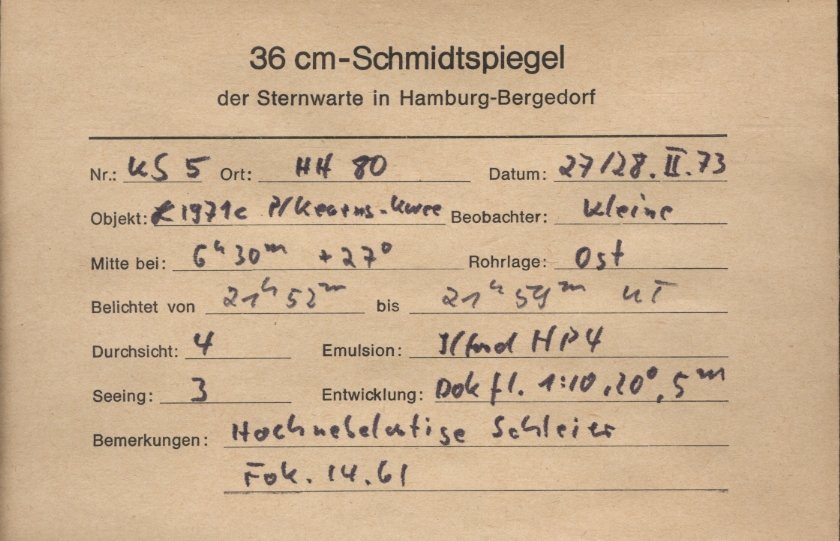 36 cm-Schmidtspiegel
der Sternwarte in Hamburg-Bergedorf
Nr.: KS 5 Ort: HH 80 Datum: 27/28. II. 73
Objekt: 1971c P/Kearns-Kwee Beobachter: Kleine
Mitte bei: 6h 30m +27° Rohrlage: Ost
Belichtet von 21h 52m bis 21h 59m UT
Durchsicht: 4 Emulsion: Ilford HP4
Seeing: 3 Entwicklung: Dok fl. 1:10, 20°, 5m
Bemerkungen: Hochnebelartige Schleier
Fok. 14.61